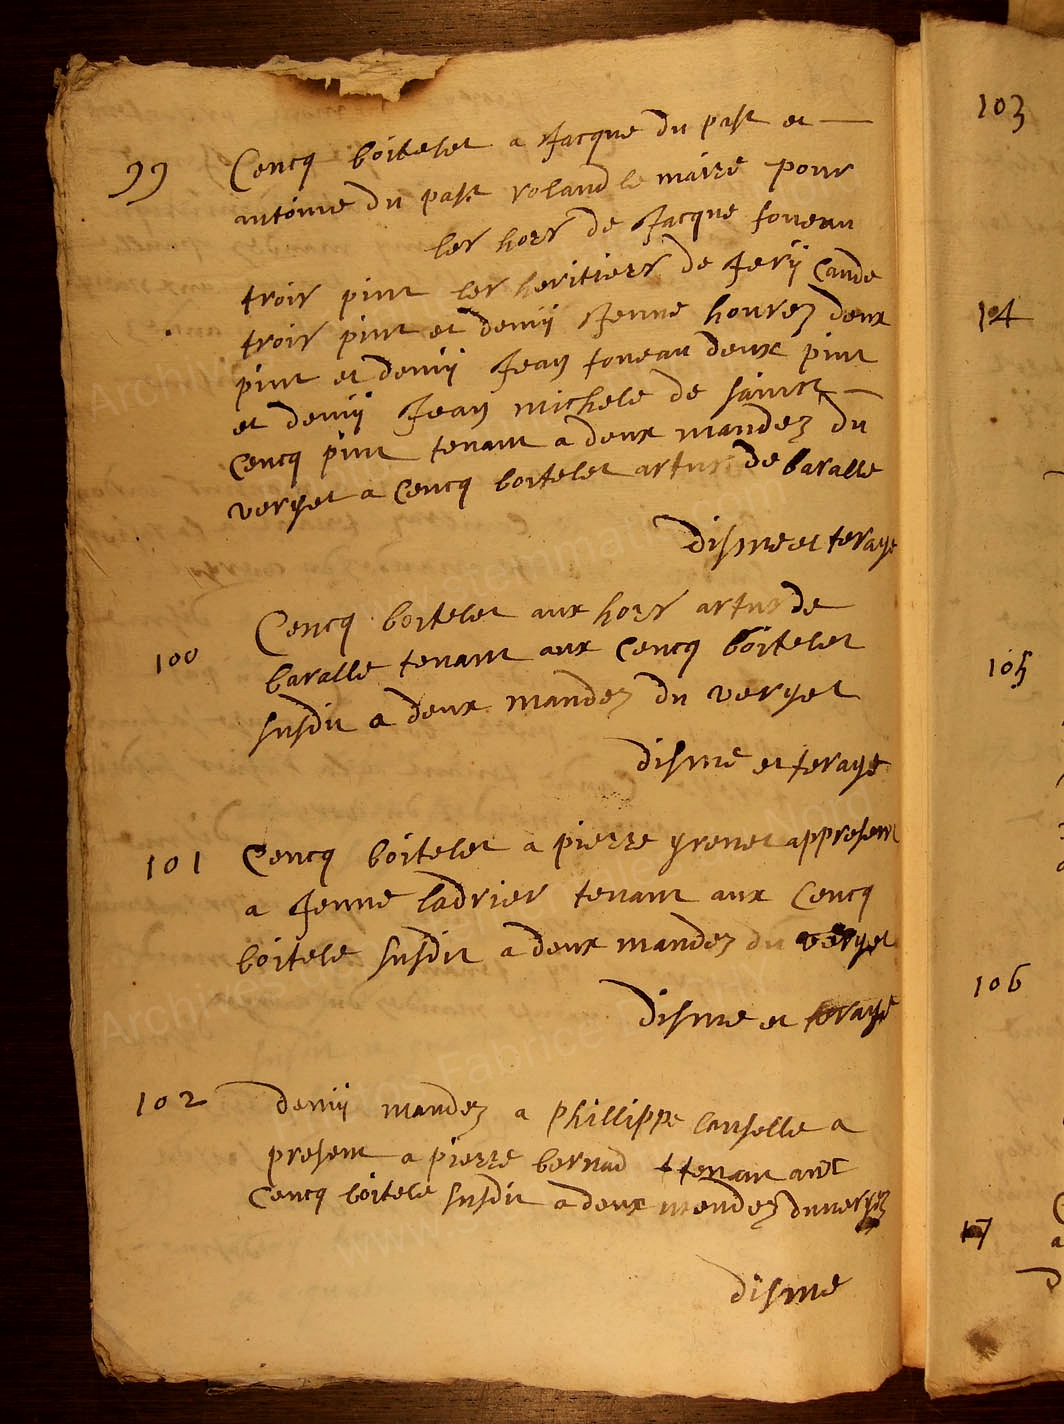 99 Cencq boitelet a Jacque du past et
antoine du past roland le maire pour
les hoirs de Jacque foueau
trois pint les heritiers de Jerij Caude
trois pint et demij Jenne hourez deux
pint et demij Jean foueau deux pint
et demij Jean michele de sainct
Cencq pint tenant a deux mandez du
verget a Cencq boitelet artus de baralle
disme et terage
100 Cencq boitelet aux hoirs artus de
baralle tenant aux Cencq boitelet
susdit a deux mandez du verget
disme et terage
101 Cencq boitelet a pierre grenet appresent
a Jenne ladrier tenant aux Cencq
boitele susdit a deux mandez du verget
disme et terage
102 demij mandez a phillippe lanselle a
present a pierre bernad ttenant aux
Cencq boitele susdit a deux mendez du verger
disme
103
104
105
106